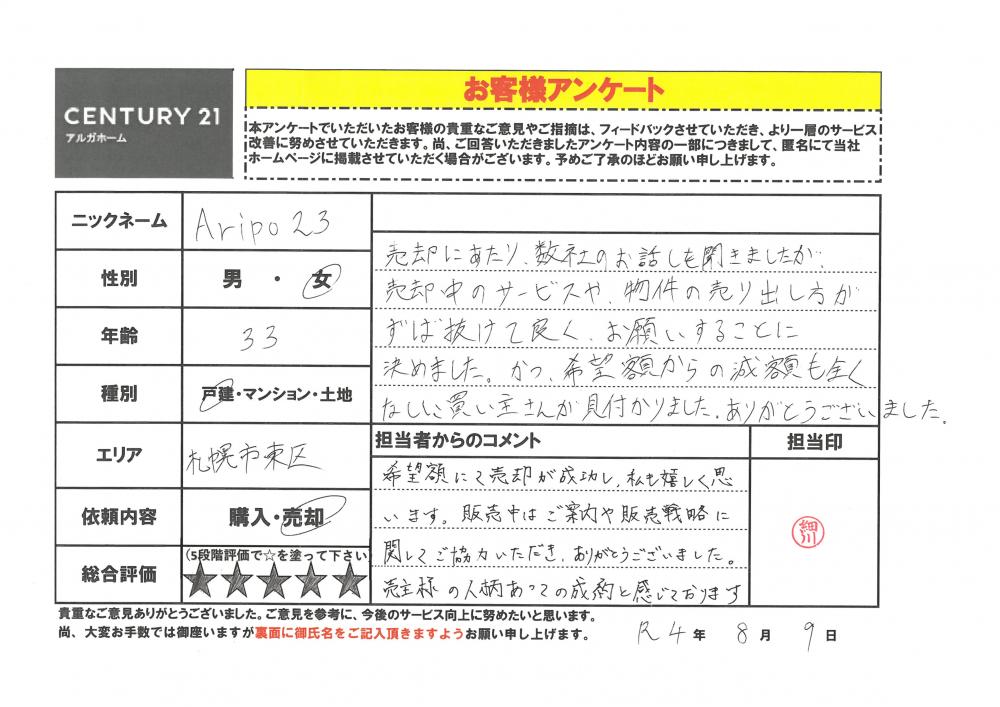 CENTURY 21
アルガホーム
お客様アンケート
本アンケートでいただいたお客様の貴重なご意見やご指摘は、フィードバックさせていただき、より一層のサービス
改善に努めさせていただきます。尚、ご回答いただきましたアンケート内容の一部につきまして、匿名にて当社
ホームページに掲載させていただく場合がございます。予めご了承のほどお願い申し上げます。
ニックネーム
Aripo23
性別
男 ・ 女
年齢
33
種別
戸建・マンション・土地
エリア
札幌市東区
依頼内容
購入・売却
総合評価
(5段階評価で☆を塗って下さい
★★★★★
売却にあたり、数社のお話しも聞きましたが、
売却中のサービスや、物件の売り出し方が
ずば抜けて良く、お願いすることに
決めました。かつ、希望額からの減額も全く
なしに買い主さんが見付かりました。ありがとうございました。
担当者からのコメント
担当印
希望額にて売却が成功し、私も嬉しく思
います。販売中はご案内や販売戦略に
関してご協力いただき、ありがとうございました。
売主様の人柄あっての成約と感じております
細川
貴重なご意見ありがとうございました。ご意見を参考に、今後のサービス向上に努めたいと思います。
尚、大変お手数では御座いますが裏面に御氏名をご記入頂きますようお願い申し上げます。
R4年 8月 9日